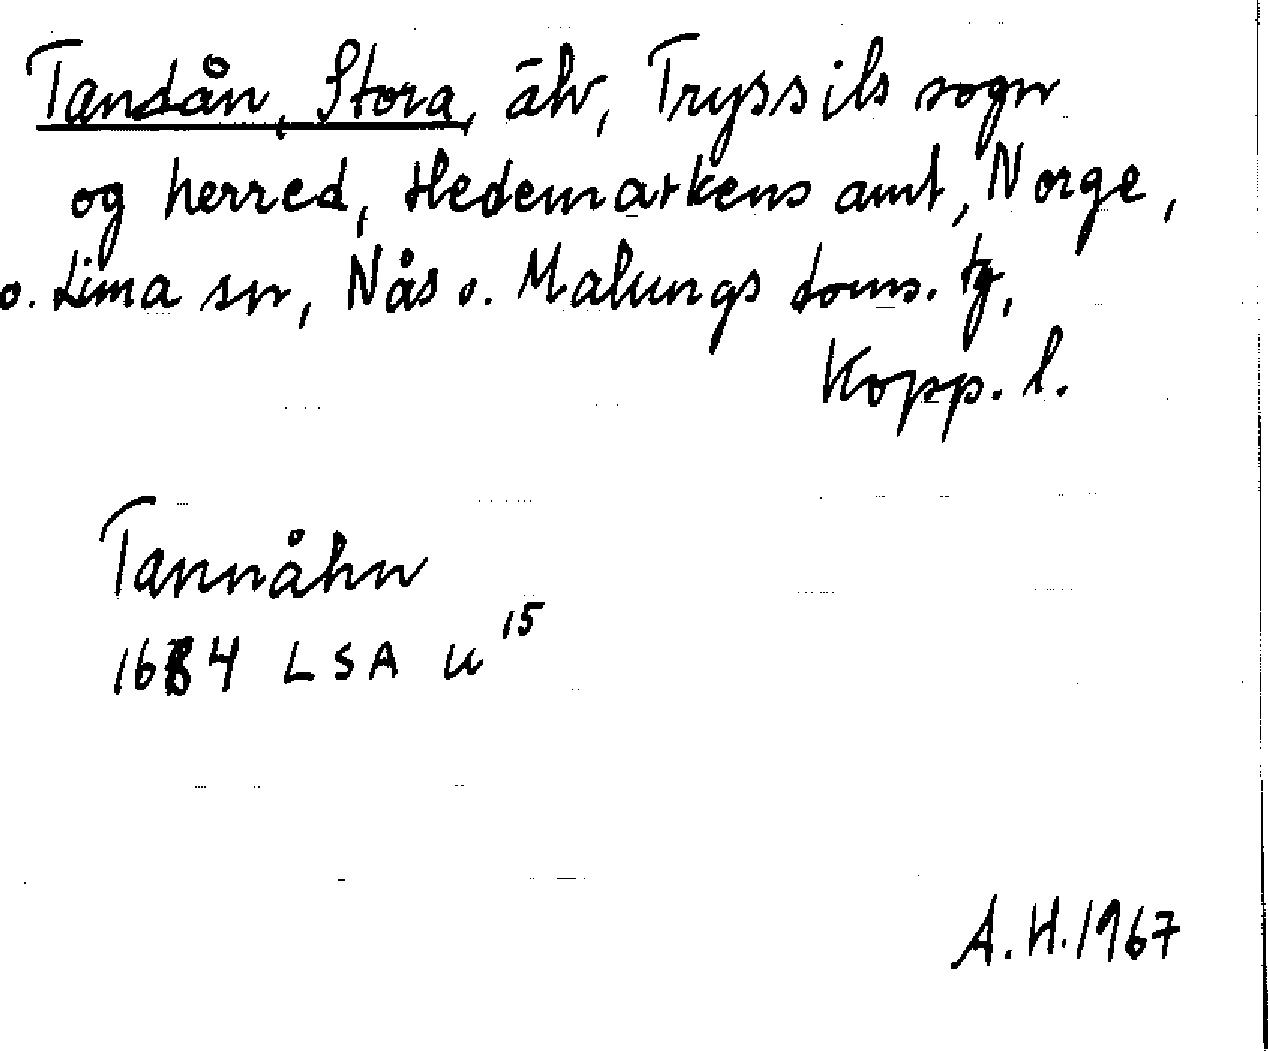 Tandån, Stora, älv, Tryssils sogn
og herred, Hedemarkens amt, Norge,
o. Lima sn, Nås o. Malungs doms. tg,
Kopp. l.
Tannåhn
1684 LSA U 15
A. H. 1967